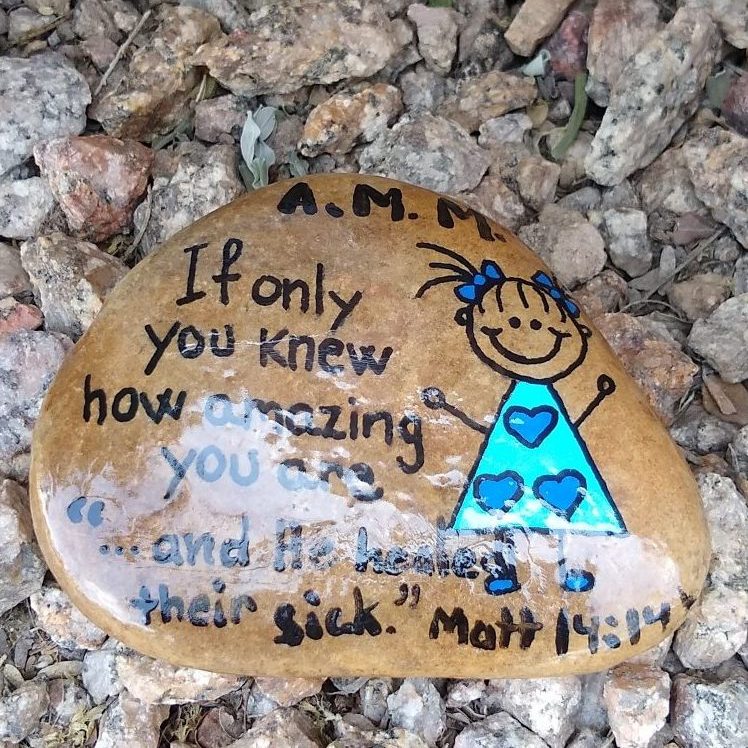 A.M.M.
If only
you knew
how amazing
you are
"...and He healed
their sick." Matt 14:14